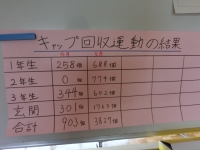 キャップ回収運動の結果
1年生 258個 688個
2年生 0個 774個
3年生 344個 602個
玄関 301個 1763個
合計 903個 3827個